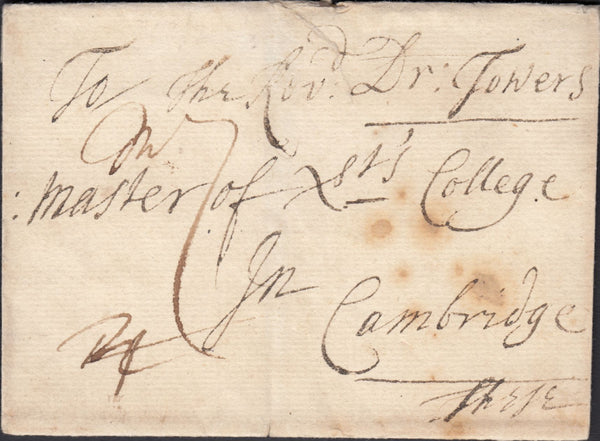 To the Revd. Dr: Towers
Master of Xst's College
In
Cambridge
These